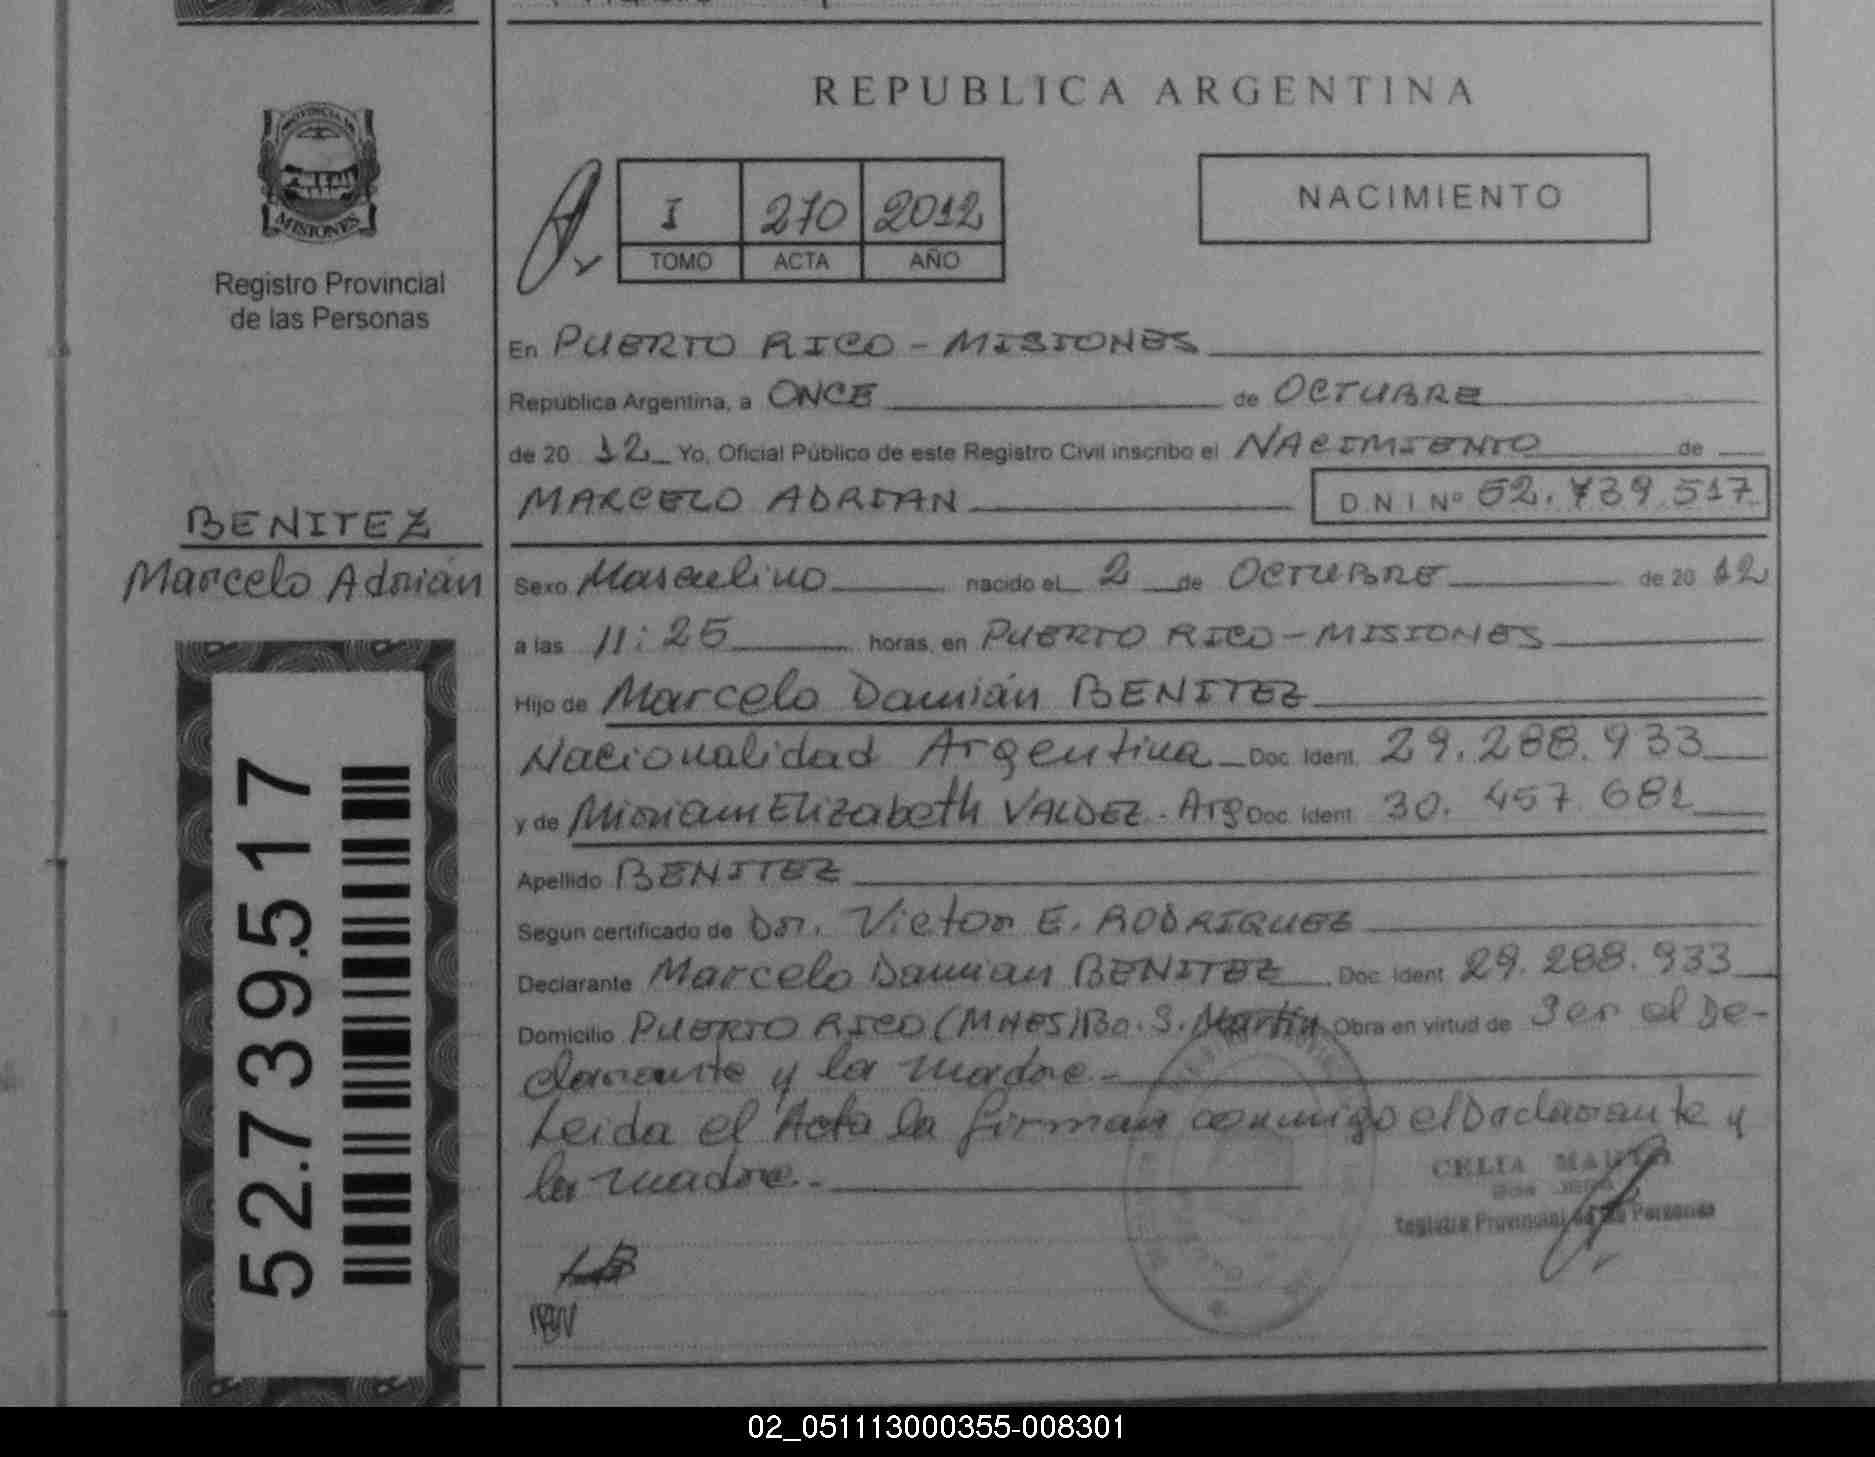 REPUBLICA ARGENTINA
PROVINCIA DE
MISIONES
Registro Provincial
de las Personas
I 270 2012
TOMO ACTA AÑO
NACIMIENTO
En PUERTO RICO - MISIONES
Republica Argentina, a ONCE de OCTUBRE
de 20 12 Yo, Oficial Público de este Registro Civil inscribo el NACIMIENTO de
MARCELO ADRIAN D.N.I Nº 52.739.517
BENITEZ
Marcelo Adrián
Sexo Masculino nacido el 2 de OCTUBRE de 20 12
a las 11:25 horas, en PUERTO RICO - MISIONES
Hijo de Marcelo Damián BENITEZ
Nacionalidad Argentina Doc. Ident. 29.288.933
y de Miriam Elizabeth VALDEZ - Arg Doc. Ident. 30.457.681
Apellido BENITEZ
Segun certificado de Dr. Victor E. RODRIGUEZ
Declarante Marcelo Damian BENITEZ Doc. Ident. 29.288.933
Domicilio PUERTO RICO (MNES) Bo. S. Martin Obra en virtud de Ser el De-
clarante y la madre.-
Leida el Acta la firman conmigo el Declarante y
la madre.-
CELIA
Registro Provincial de las Personas
52.739.517
02_051113000355-008301